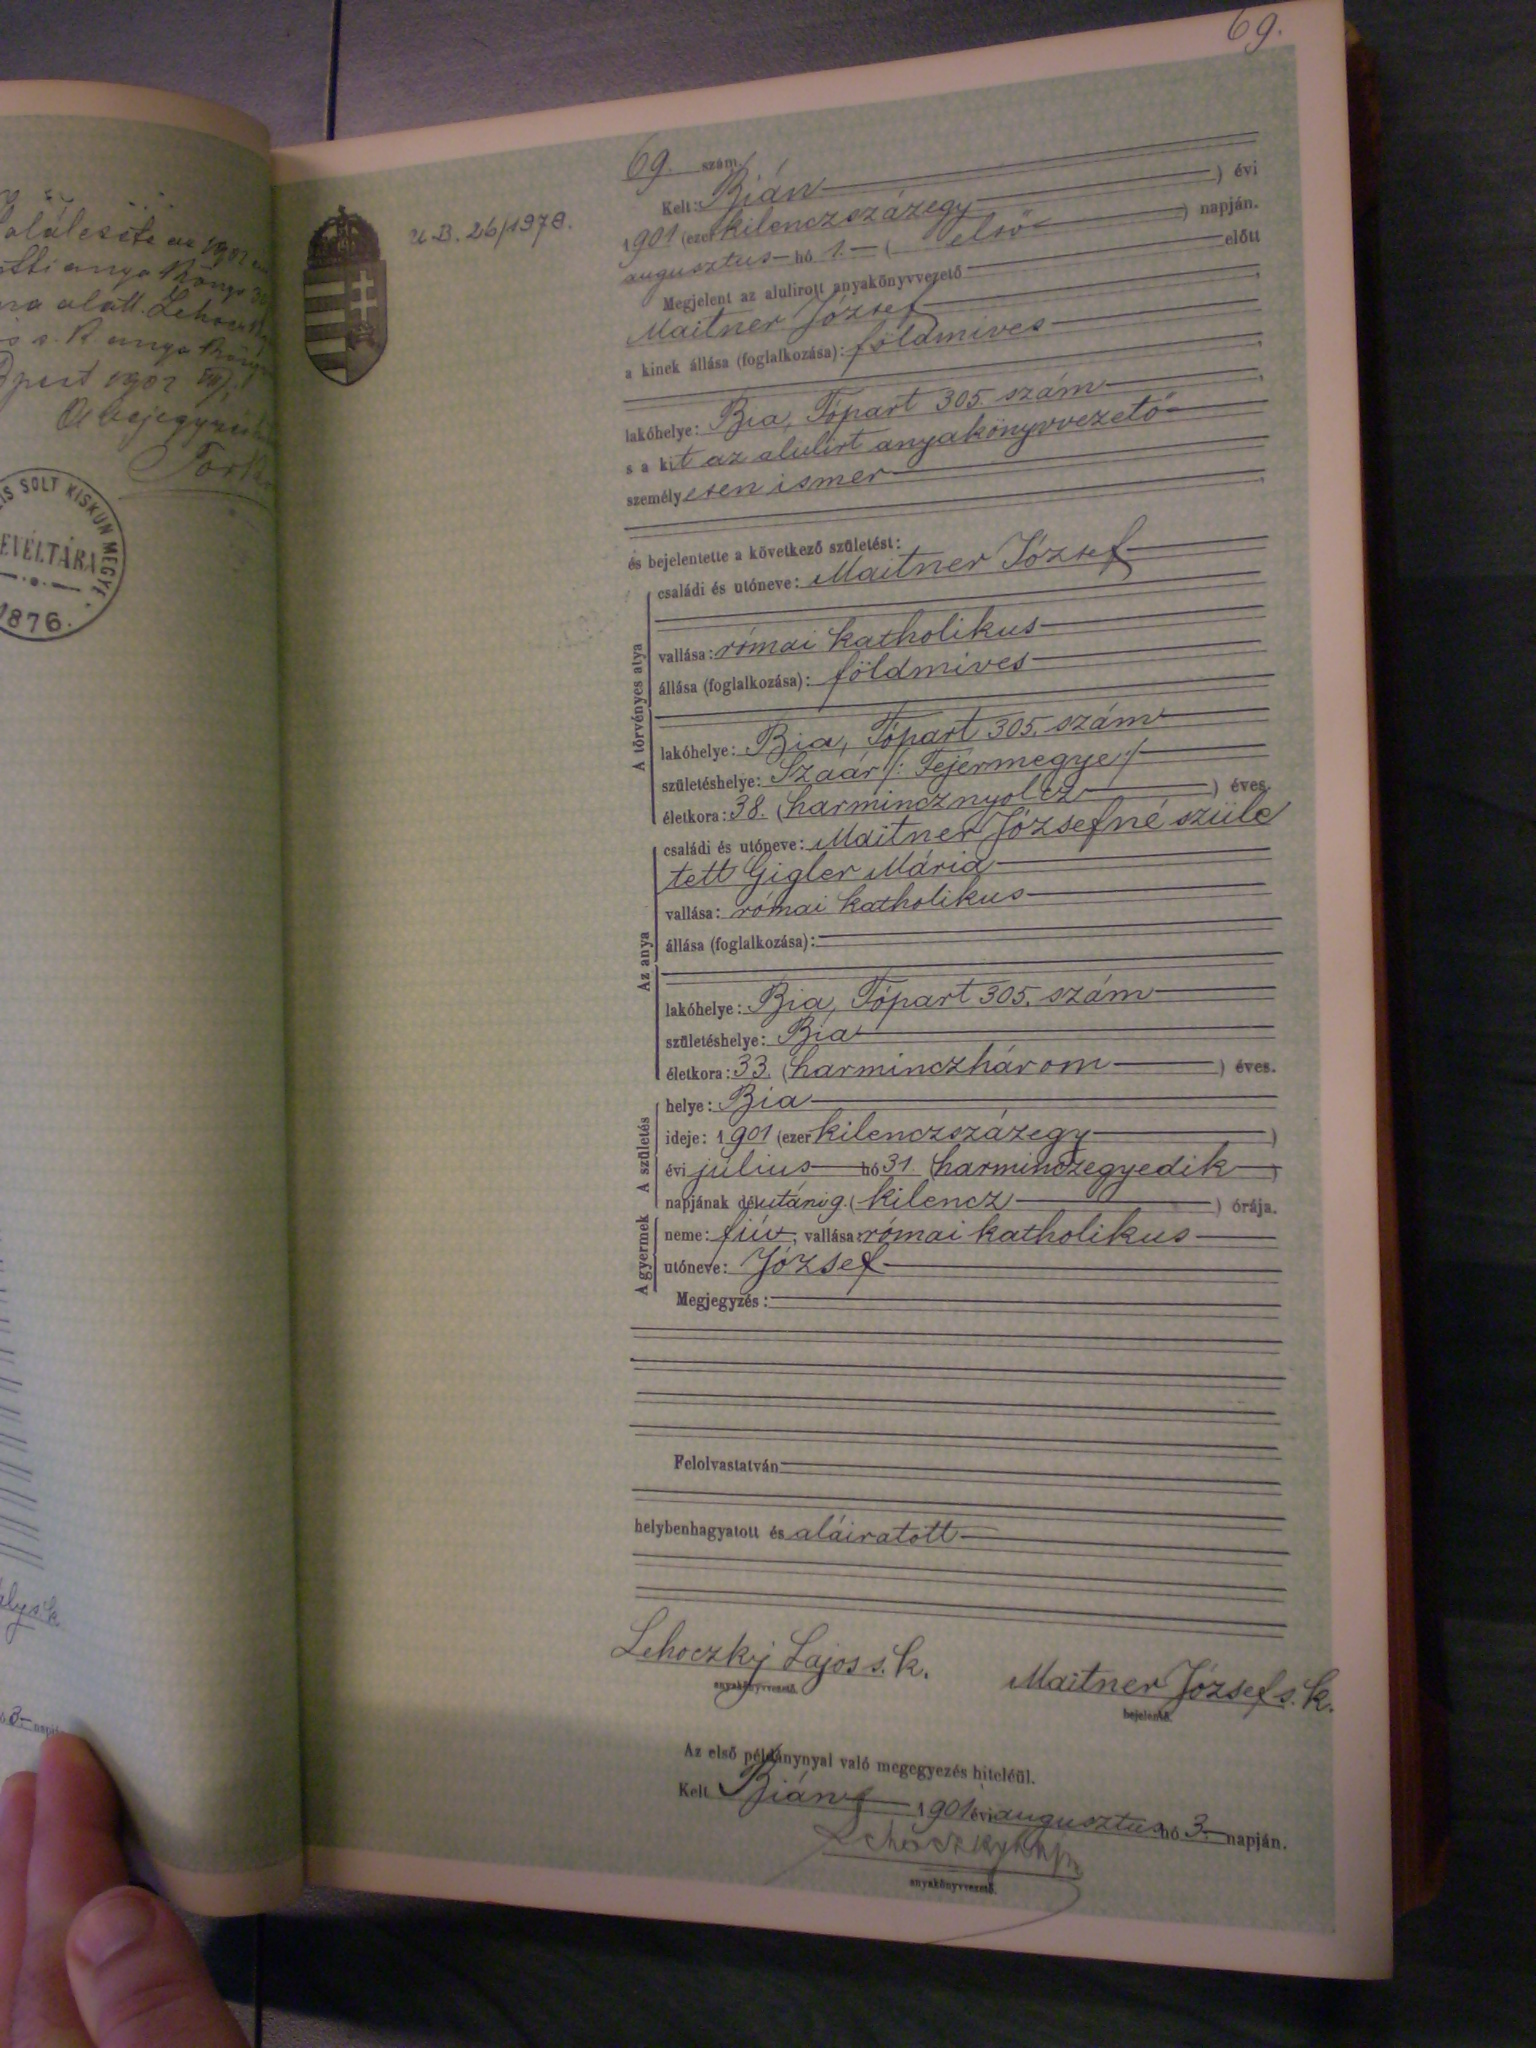 69.
alálesete az 1902
anya
ma alatt Lehoczky
anya
1902
A bejegyzés
IS SOLT KISKUN MEGYE
LEVÉLTÁRA
1876.
3. napján
U.B. 26/1978.
69. szám.
Kelt: Bián
1901 (ezer kilenczszázegy ) évi
augusztus hó 1. ( első ) napján.
Megjelent az alulirott anyakönyvvezető előtt
Maitner József
a kinek állása (foglalkozása): földmives
lakóhelye: Bia, Tópart 305. szám
s a kit az alulirt anyakönyvvezető
személyesen ismer
és bejelentette a következő születést:
A törvényes atya
családi és utóneve: Maitner József
vallása: római katholikus
állása (foglalkozása): földmives
lakóhelye: Bia, Tópart 305. szám
születéshelye: Szaár /: Fejérmegye :/
életkora: 38. (harmincznyolcz ) éves.
Az anya
családi és utóneve: Maitner Józsefné szüle
tett Gigler Mária
vallása: római katholikus
állása (foglalkozása):
lakóhelye: Bia, Tópart 305. szám
születéshelye: Bia
életkora: 33. (harminczhárom ) éves.
A születés
helye: Bia
ideje: 1901 (ezer kilenczszázegy )
évi július hó 31. (harminczegyedik )
napjának délutáni 9. ( kilencz ) órája.
A gyermek
neme: fiú, vallása: római katholikus
utóneve: József
Megjegyzés:
Felolvastatván
helybenhagyatott és aláiratott
Lehoczky Lajos s. k.
anyakönyvvezető.
Maitner József s. k.
bejelentő.
Az első példánynyal való megegyezés hiteléül.
Kelt Bián 1901 évi augusztus hó 3. napján.
Lehoczky Lajos
anyakönyvvezető.